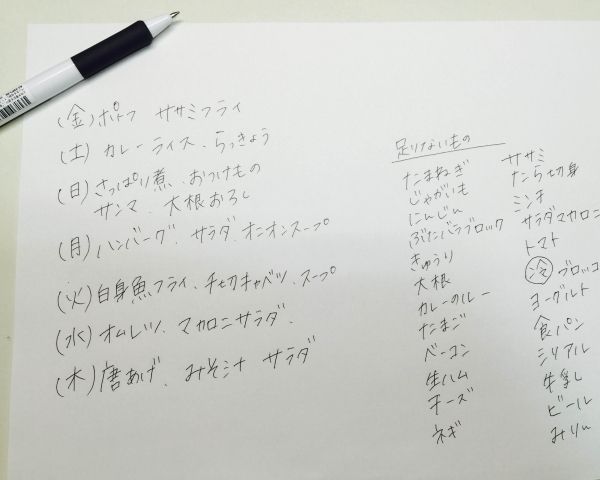 (金)ポトフ ササミフライ
(土)カレーライス、らっきょう
(日)さっぱり煮、おつけもの
サンマ、大根おろし
(月)ハンバーグ、サラダ、オニオンスープ
(火)白身魚フライ、千切キャベツ、スープ
(水)オムレツ、マカロニサラダ、
(木)唐あげ、みそ汁 サラダ
足りないもの
たまねぎ
じゃがいも
にんじん
ぶたバラブロック
きゅうり
大根
カレーのルー
たまご
ベーコン
生ハム
チーズ
ネギ
ササミ
たら切身
ミンチ
サラダマカロニ
トマト
冷 ブロッコ
ヨーグルト
食パン
シリアル
牛乳
ビール
みりん